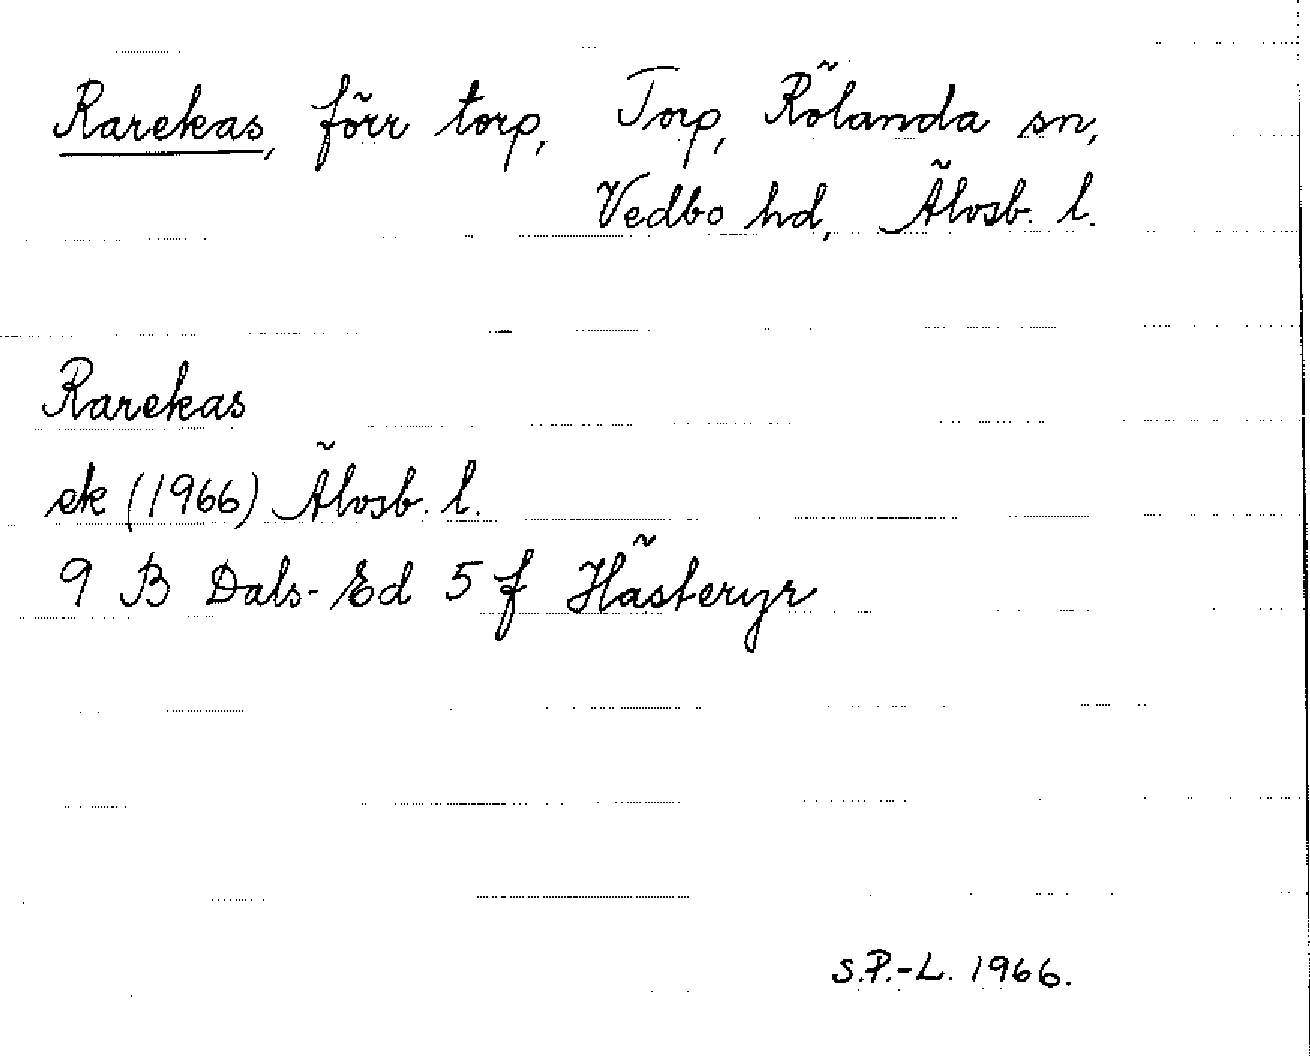 Rarekas, förr torp, Torp, Rölanda sn,
Vedbo hd, Älvsb. l.
Rarekas
ek (1966) Älvsb. l.
9 B Dals-Ed 5 f Hästeryr
S.P.-L. 1966.